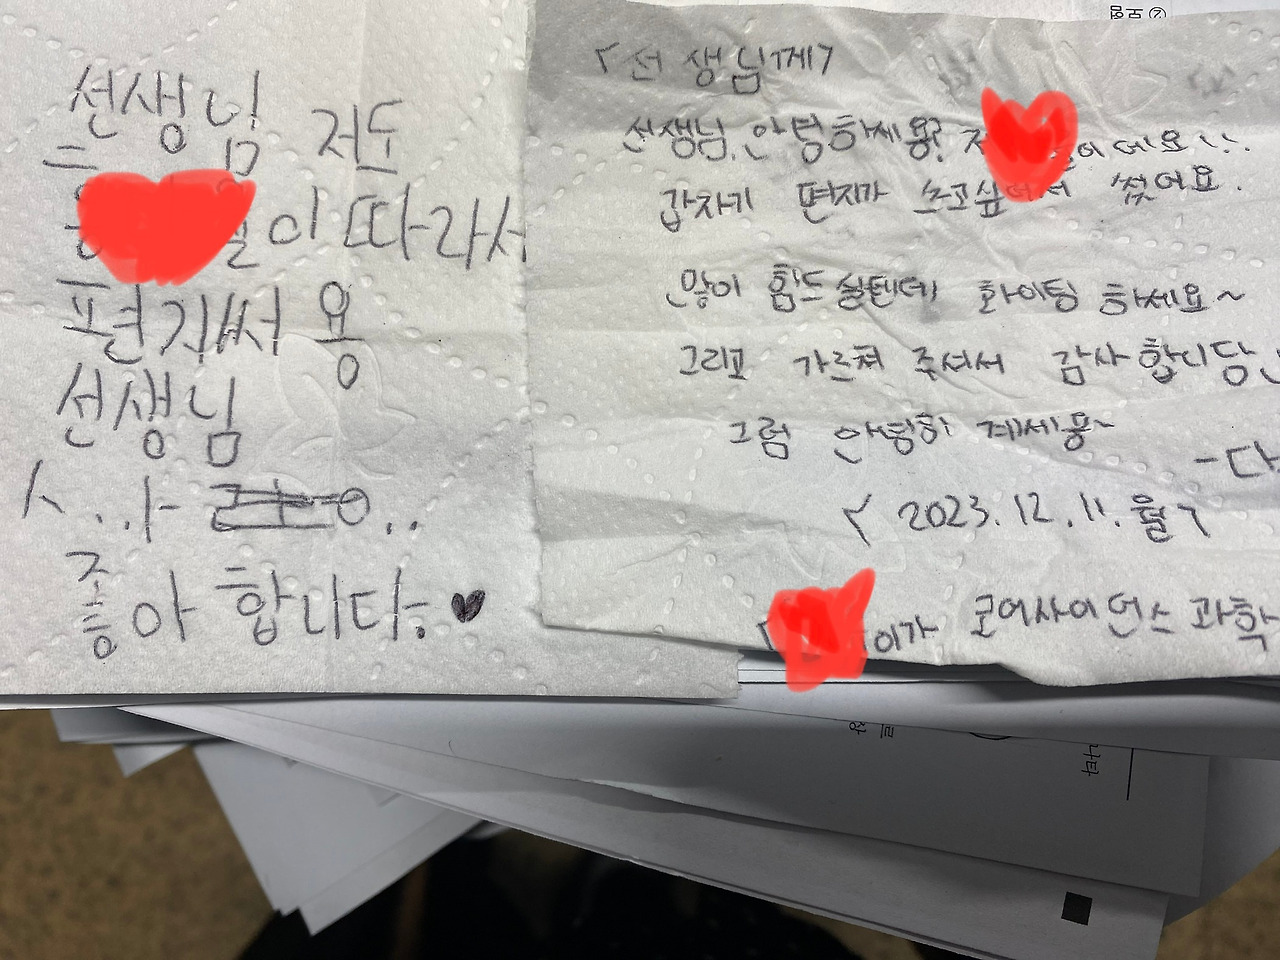 선생님 저도
이 따라서
편지써용
선생님
좋아합니다 ♥
「선생님께」
선생님, 안텽하세용?
갑자기 편지가 쓰고싶 썼어요.
많이 힘드실텐데 화이팅 하세요~
그리고 가르쳐 주셔서 감사합니당
그럼 안텽히 계세용~
「2023.12.11.월」
이가 코어사이언스 과학